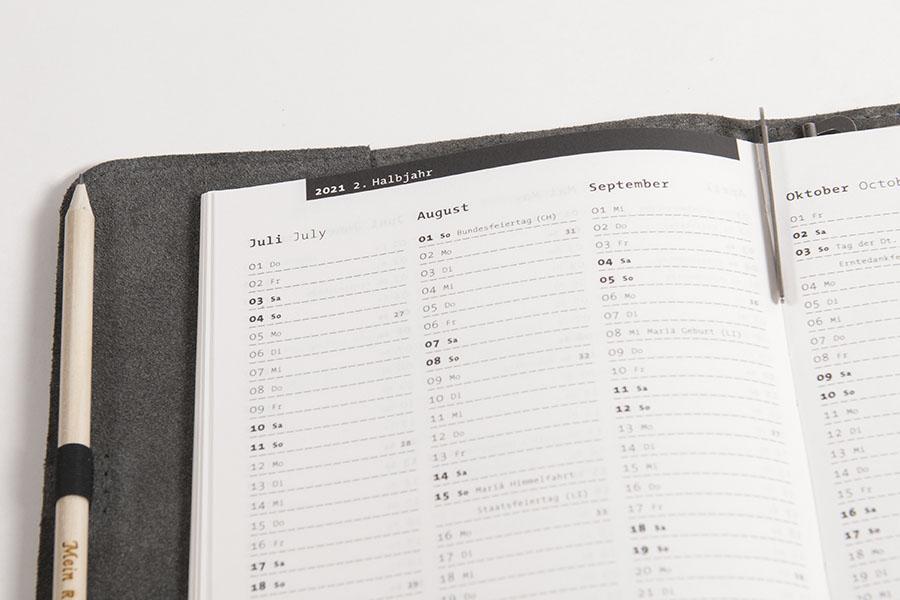 2021 2. Halbjahr
Juli July
01 Do
02 Fr
03 Sa
04 So
05 Mo 27
06 Di
07 Mi
08 Do
09 Fr
10 Sa
11 So
12 Mo 28
13 Di
14 Mi
15 Do
16 Fr
17 Sa
18 So
29
August
01 So Bundesfeiertag (CH)
02 Mo 31
03 Di
04 Mi
05 Do
06 Fr
07 Sa
08 So
09 Mo 32
10 Di
11 Mi
12 Do
13 Fr
14 Sa
15 So Mariä Himmelfahrt
Staatsfeiertag (LI)
16 Mo 33
17 Di
18 Mi
19 Do
September
01 Mi
02 Do
03 Fr
04 Sa
05 So
06 Mo 36
07 Di
08 Mi Mariä Geburt (LI)
09 Do
10 Fr
11 Sa
12 So
13 Mo 37
14 Di
15 Mi
16 Do
17 Fr
18 Sa
19 So
20 Mo 38
21 Di
Oktober Octo
01 Fr
02 Sa
03 So Tag der Dt.
Erntedankfe
04 Mo
05 Di
06 Mi
07 Do
08 Fr
09 Sa
10 So
11 Mo
12 Di
13 Mi
14 Do
15 Fr
16 Sa
17 So
18 Mo
19 Di
20 Mi
Mein R